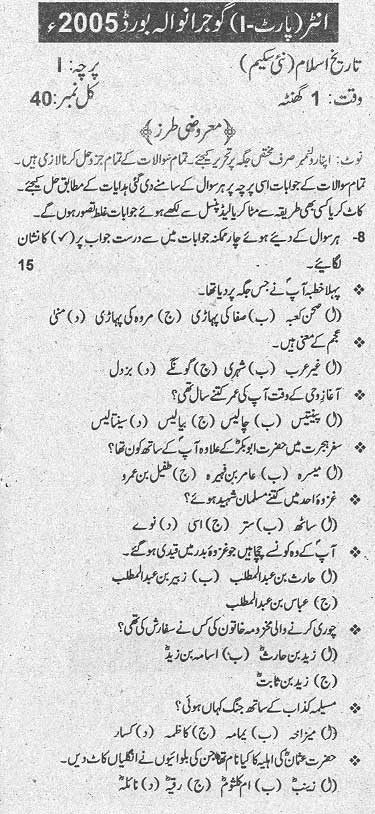 انٹر (پارٹ-I) گوجرانوالہ بورڈ 2005ء
تاریخ اسلام (نئی سکیم) پرچہ: I
وقت: 1 گھنٹہ کل نمبر: 40
﴿معروضی طرز﴾
نوٹ: اپنا رولنمبر صرف مختص جگہ پر تحریر کیجئے۔ تمام سوالات کے تمام جزو حل کرنا لازمی ہیں۔
تمام سوالات کے جوابات اسی پرچہ پر ہر سوال کے سامنے دی گئی ہدایات کے مطابق حل کیجئے۔
کاٹ کر یا کسی بھی طریقہ سے مٹا کر یا لیڈ پنسل سے لکھے ہوئے جوابات غلط تصور ہوں گے۔
8- ہر سوال کے دیئے ہوئے چار ممکنہ جوابات میں سے درست جواب پر (✓) کا نشان
لگائیے۔ 15
❖ پہلا خطبہ آپؐ نے جس جگہ پر دیا تھا۔
(ا) صحن کعبہ (ب) صفا کی پہاڑی (ج) مروہ کی پہاڑی (د) منیٰ
❖ عجم کے معنی ہیں۔
(ا) غیر عرب (ب) شہری (ج) گونگے (د) بزدل
❖ آغاز وحی کے وقت آپؐ کی عمر کتنے سال تھی؟
(ا) پینتیس (ب) چالیس (ج) بیالیس (د) سینتالیس
❖ سفر ہجرت میں حضرت ابوبکرؓ کے علاوہ آپؐ کے ساتھ کون تھا؟
(ا) میسرہ (ب) عامر بن فہیرہ (ج) طفیل بن عمرو
❖ غزوہ احد میں کتنے مسلمان شہید ہوئے؟
(ا) ساٹھ (ب) ستر (ج) اسی (د) نوے
❖ آپؐ کے وہ کونسے چچا ہیں جو غزوہ بدر میں قیدی ہو گئے۔
(ا) حارث بن عبدالمطلب (ب) زبیر بن عبدالمطلب
(ج) عباس بن عبدالمطلب
❖ چوری کرنے والی مخزومہ خاتون کی کس نے سفارش کی تھی؟
(ا) زید بن حارثؓ (ب) اسامہ بن زیدؓ
(ج) زید بن ثابتؓ
❖ مسیلمہ کذاب کے ساتھ جنگ کہاں ہوئی؟
(ا) میزاخہ (ب) یمامہ (ج) کاظمہ (د) کسار
❖ حضرت عثمانؓ کی اہلیہ کا کیا نام تھا جن کی بلوائیوں نے انگلیاں کاٹ دیں۔
(ا) زینبؓ (ب) ام کلثومؓ (ج) رقیہؓ (د) نائلہؓ